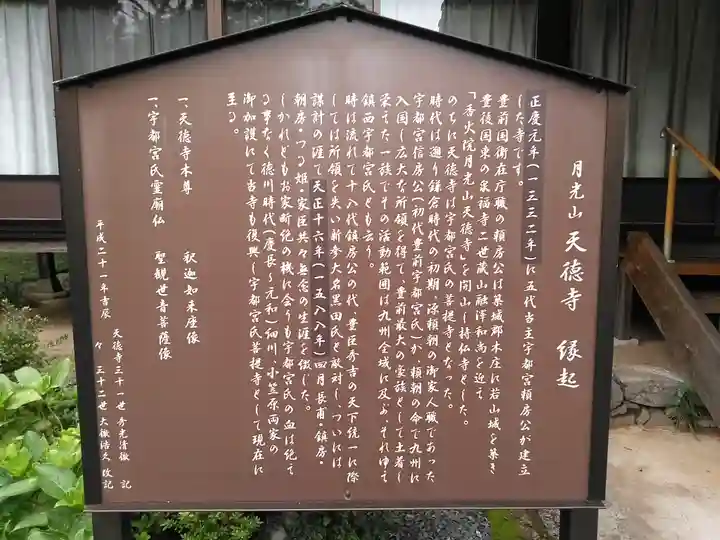 月光山 天徳寺 縁起
正慶元年(一三三二年)に五代当主宇都宮頼房公が建立
した寺です。
豊前国衙在庁職の頼房公は築城郡本庄に若山城を築き
豊後国東の泉福寺二世蔵山融澤和尚を迎て
「香火院月光山天徳寺」を開山し持仏寺とした。
のちに天徳寺は宇都宮氏の菩提寺となった。
時代は遡り鎌倉時代の初期、源頼朝の御家人職であった
宇都宮信房公(初代豊前宇都宮氏)が、頼朝の命で九州に
入国し広大な所領を得て、豊前最大の豪族として土着し
栄えた一族でその活動範囲は九州全域に及ぶ、それゆえ
鎮西宇都宮氏とも云う。
時は流れて十八代鎮房公の代、豊臣秀吉の天下統一に際
しては所領を失い新参大名黒田氏と敵対し、ついには
謀計の涯て天正十六年(一五八八年)四月長甫・鎮房・
朝房・つる姫・家臣共々無念の生涯を俶じた。
しかれどもお家断絶の機に会うも宇都宮氏の血は絶て
る事なく徳川時代(慶長〜元和)細川、小笠原両家の
御加護にて当寺も復興し宇都宮氏菩提寺として現在に
至る。
一、天徳寺本尊 釈迦如来座像
一、宇都宮氏霊廟仏 聖観世音菩薩像
平成二十一年吉辰 天徳寺三十一世 秀光清徹 記
々 三十二世 大徹浩文 改記